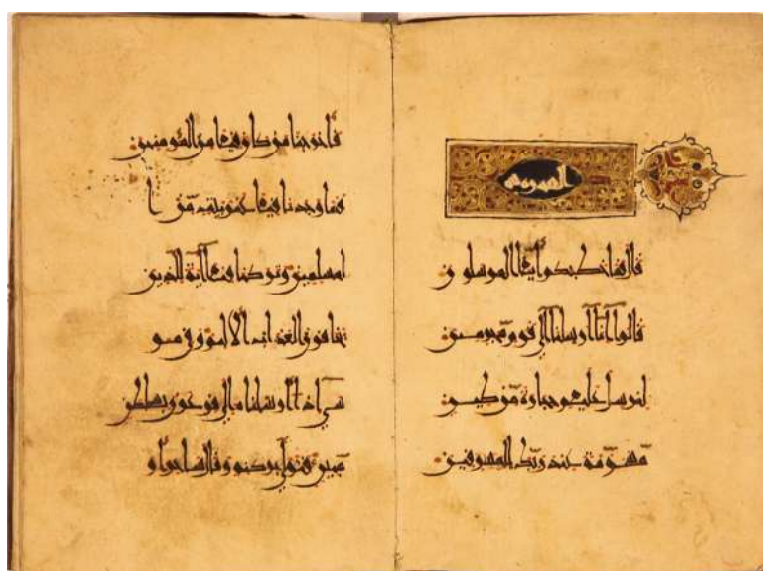 العشرين
قال فما خطبكم أيها المرسلون
قالوا إنا أرسلنا إلى قوم مجرمين
لنرسل عليهم حجارة من طين
مسومة عند ربك للمسرفين
فأخرجنا من كان فيها من المؤمنين
فما وجدنا فيها غير بيت من ا
لمسلمين وتركنا فيها آية للذين
يخافون العذاب الأليم وفي مو
سى إذ أرسلناه إلى فرعون بسلطن
مبين فتولى بركنه وقال ساحر أو